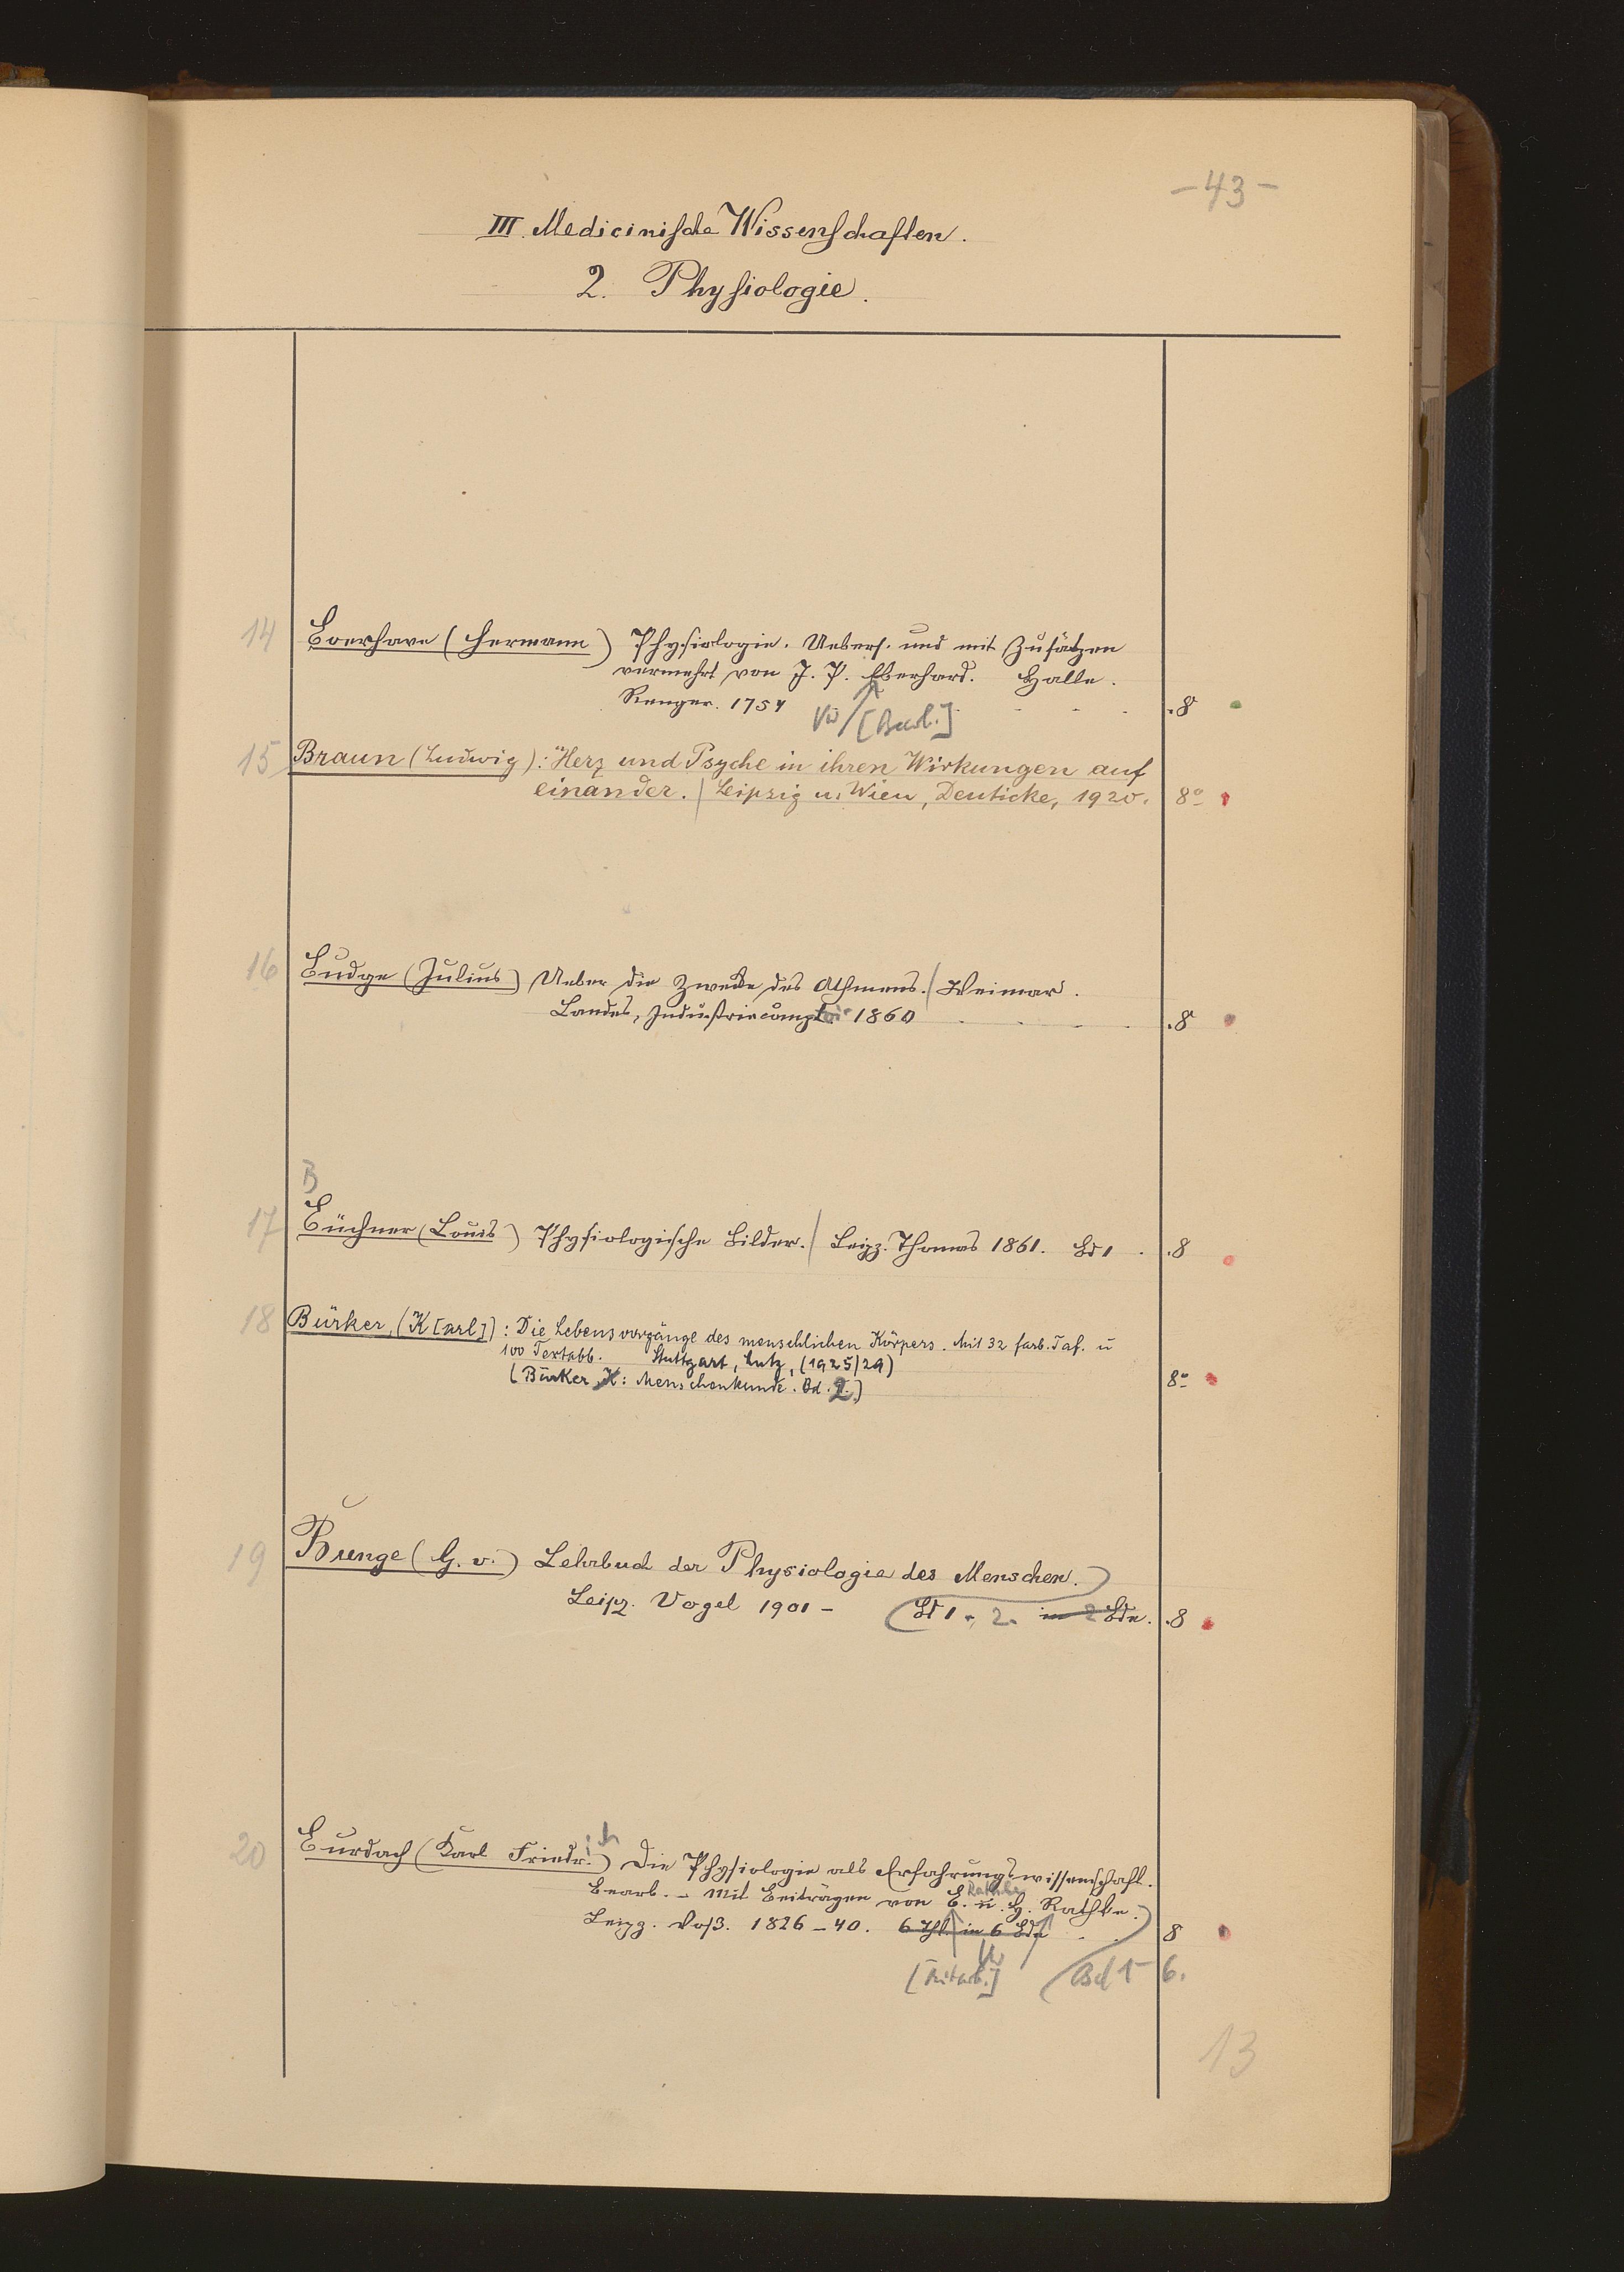 - 43 -
III. Medicinische Wissenschaften.
2. Physiologie.
14 Boerhave (Hermann) Physiologie. Uebers. und mit Zusätzen
vermehrt von J. P. Eberhard. Halle.
Renger. 1754 . . . . 8
[Bearb.]
15 Braun (Ludwig): Herz und Psyche in ihren Wirkungen auf
einander. | Leipzig u. Wien, Deuticke, 1920. 8º
16 Budge (Julius) Ueber die Zwecke des Athmens. | Weimar.
Landes, Industriecomptoir 1860 . . . . 8
B
17 Büchner (Louis) Physiologische Bilder. | Leipz. Thomas 1861. Bd 1 . . 8
18 Bürker, (K[arl]): Die Lebensvorgänge des menschlichen Körpers. Mit 32 farb. Taf. u
100 Textabb. Stuttgart, Lutz, (1925/29)
(Bürker, K: Menschenkunde. Bd. 2.) 8º
19 Bunge (G. v.) Lehrbuch der Physiologie des Menschen.
Leipz. Vogel 1901 - Bd 1. 2. in 2 Bdn. . 8
20 Burdach (Karl Friedrich) Die Physiologie als Erfahrungswissenschaft.
Bearb. - Mit Beiträgen von E. Rathke u. H. Rathke.
Leipz. Voß. 1826-40. 6 Thl. in 6 Bdn . . 8
[Mitarb.] Bd 1-6.
13